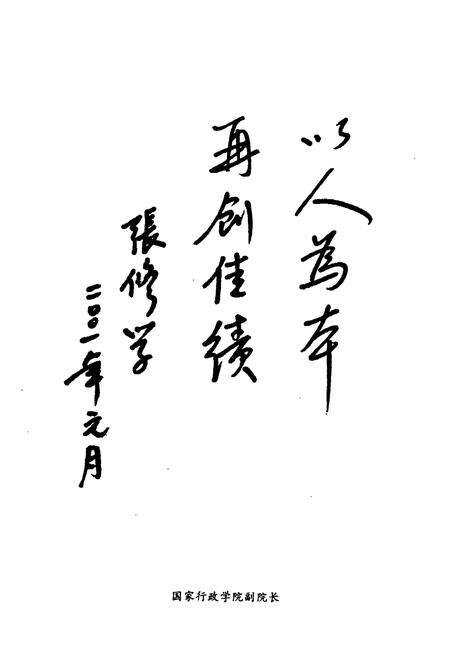 以人為本
再创佳績
張修学
二〇〇一年元月
国家行政学院副院长